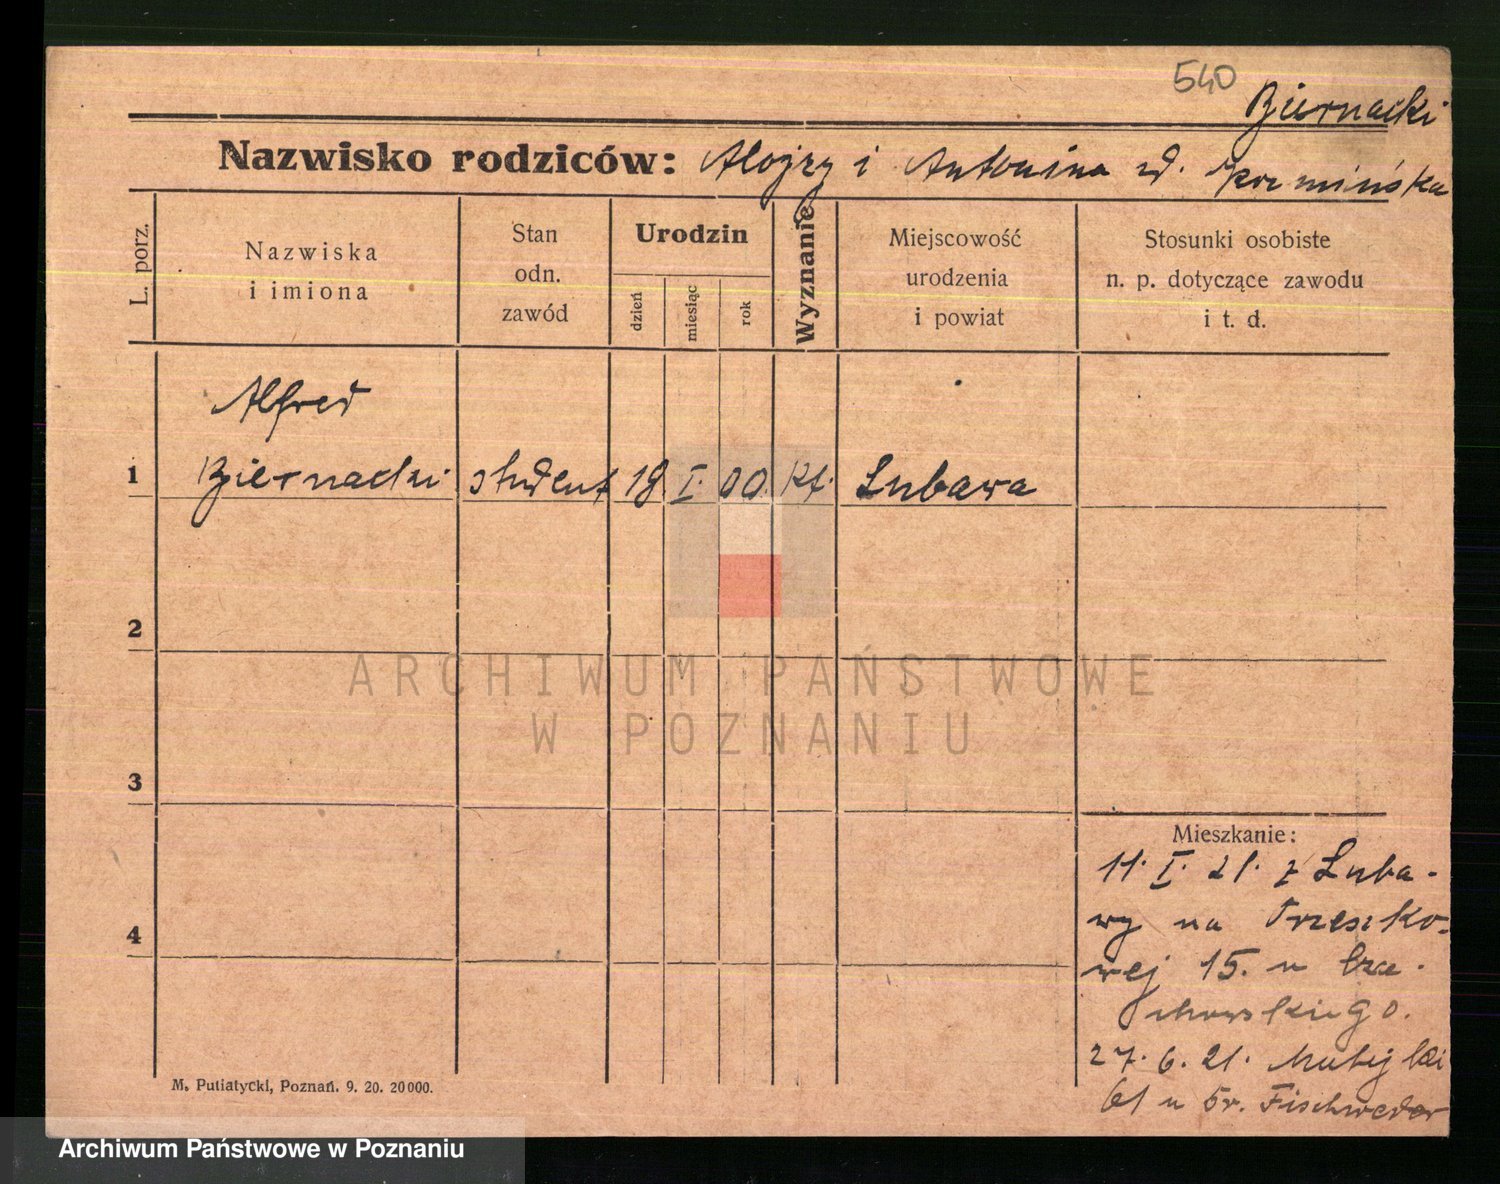 540
Biernacki
Nazwisko rodziców: Alojzy i Antonina zd.
L. porz.
Nazwiska i imiona
Stan odn. zawód
Urodzin
dzień
miesiąc
rok
Wyznanie
Miejscowość urodzenia i powiat
Stosunki osobiste n. p. dotyczące zawodu i t. d.
Alfred
1 Biernacki student 18. I. 00. kt. Lubawa
2
3
4
Mieszkanie:
11. I. 21. z Luba-
wy na
wej 15. u
27. 6. 21.
61 u
M. Putiatycki, Poznań. 9. 20. 20000.
ARCHIWUM PAŃSTWOWE
W POZNANIU
Archiwum Państwowe w Poznaniu